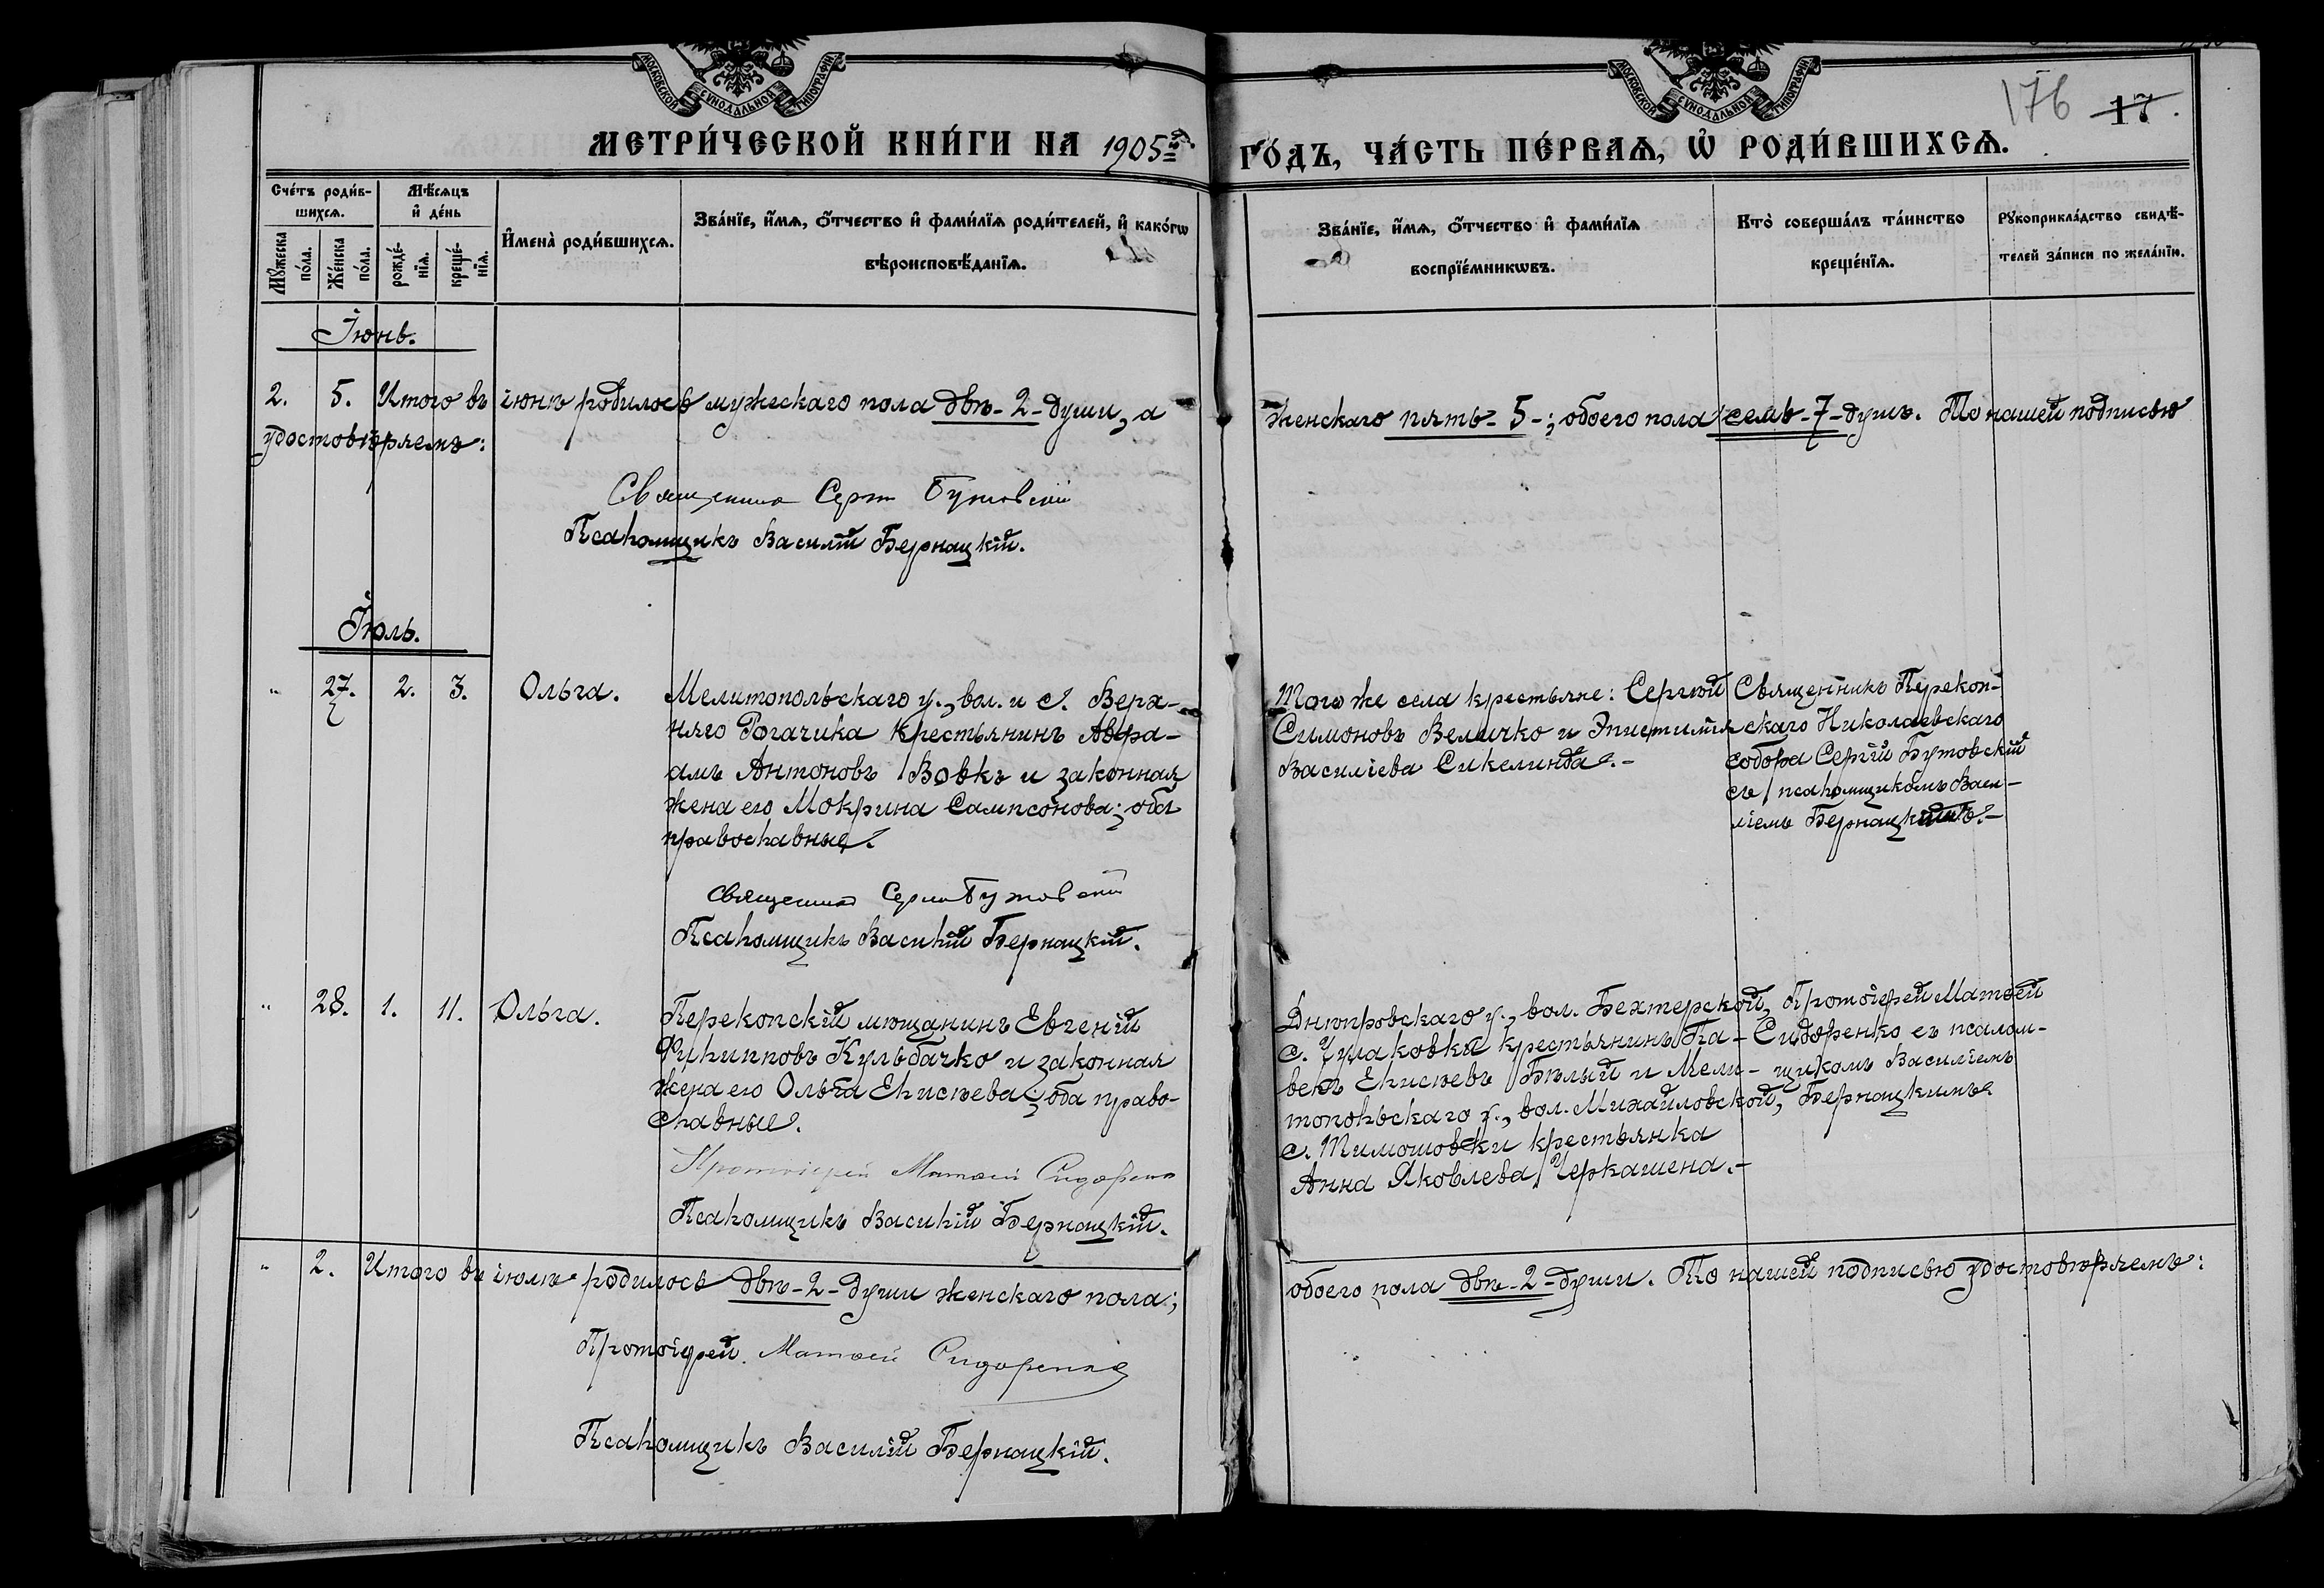 МОСКОВСКОЙ СѴНОДАЛЬНОЙ ТИПОГРАФІИ
МОСКОВСКОЙ СѴНОДАЛЬНОЙ ТИПОГРАФІИ
176 17.
МЕТРИ́ЧЕСКОЙ КНИ́ГИ НА 1905й
ГО́ДЪ, ЧА́СТЬ ПЕ́РВАѦ, Ѡ҆ РОДИ́ВШИХСѦ.
Сче́тъ роди́в-
шихсѧ.
Мꙋ́жеска по́ла.
Же́нска по́ла.
Мѣ́сѧцъ
и҆ де́нь
рожде́-
нїѧ.
креще́-
нїѧ.
И҆мена̀ роди́вшихсѧ.
Зва́нїе, и҆́мѧ, ѻ҆́тчество и҆ фами́лїѧ роди́телей, и҆ како́гѡ
вѣроисповѣ́данїѧ.
Зва́нїе, и҆́мѧ, ѻ҆́тчество и҆ фами́лїѧ
воспрїе́мникѡвъ.
Кто̀ соверша́лъ та́инство
креще́нїѧ.
Рꙋкоприкла́дство свидѣ́-
телей за́писи по жела́нїю.
Іюнь.
2. 5. Итого въ іюнѣ родилось мужескаго пола двѣ - 2 - души, а
женскаго пять - 5 -; обоего пола семь - 7 - душъ. То нашей подписью
удостовѣряемъ:
Священник Сергій Бутовскій
Псаломщикъ Василій Бернацкій.
Іюль.
" 27. 2. 3. Ольга.
Мелитопольскаго у., вол. и с. Верх-
няго Рогачика крестьянинъ Авра-
амъ Антоновъ Вовкъ и законная
жена его Мокрина Сампсонова; оба
православные.
Священник Сергій Бутовскій
Псаломщикъ Василій Бернацкій.
Того же села крестьяне: Сергѣй
Симоновъ Величко и Эпистимія
Василіева Сикелинда.-
Священникъ Перекоп-
скаго Николаевскаго
собора Сергій Бутовскій
съ псаломщикомъ Васи-
ліемъ Бернацкимъ.-
" 28. 1. 11. Ольга.
Перекопскій мѣщанинъ Евгеній
Филипповъ Кульбачко и законная
жена его Ольга Елисѣева; оба право-
славные.
Протоіерей Матѳей Сидоренко
Псаломщикъ Василій Бернацкій.
Днѣпровскаго у., вол. Бехтерской,
с. Чулаковки крестьянинъ Па-
велъ Елисѣевъ Бѣлый и Мели-
топольскаго у., вол. Михайловской,
с. Тимошовки крестьянка
Анна Яковлева Черкашена.-
Протоіерей Матѳей
Сидоренко съ псалом-
щикомъ Василіемъ
Бернацкимъ.
" 2. Итого въ іюлѣ родилось двѣ - 2 - души женскаго пола;
обоего пола двѣ - 2 - души. То нашей подписью удостовѣряемъ:
Протоіерей Матѳей Сидоренко
Псаломщикъ Василій Бернацкій.